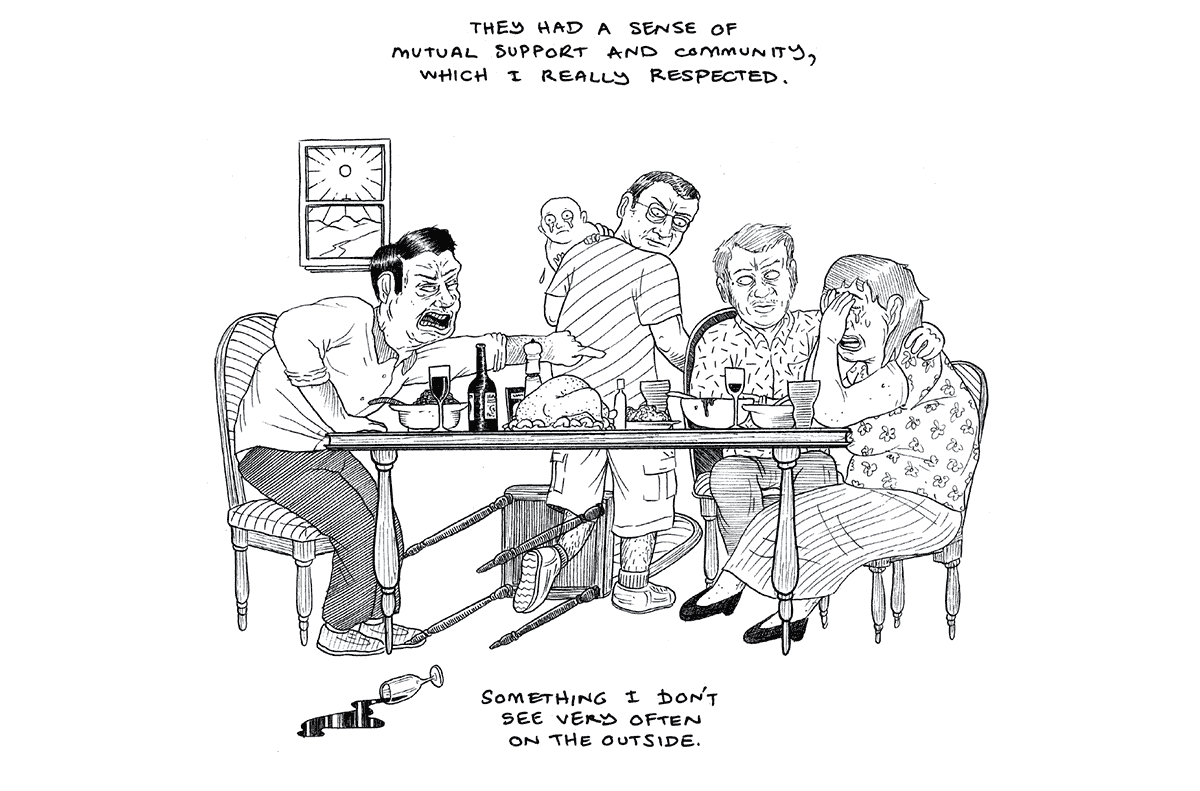 THEY HAD A SENSE OF
MUTUAL SUPPORT AND COMMUNITY,
WHICH I REALLY RESPECTED.
SOMETHING I DON'T
SEE VERY OFTEN
ON THE OUTSIDE.